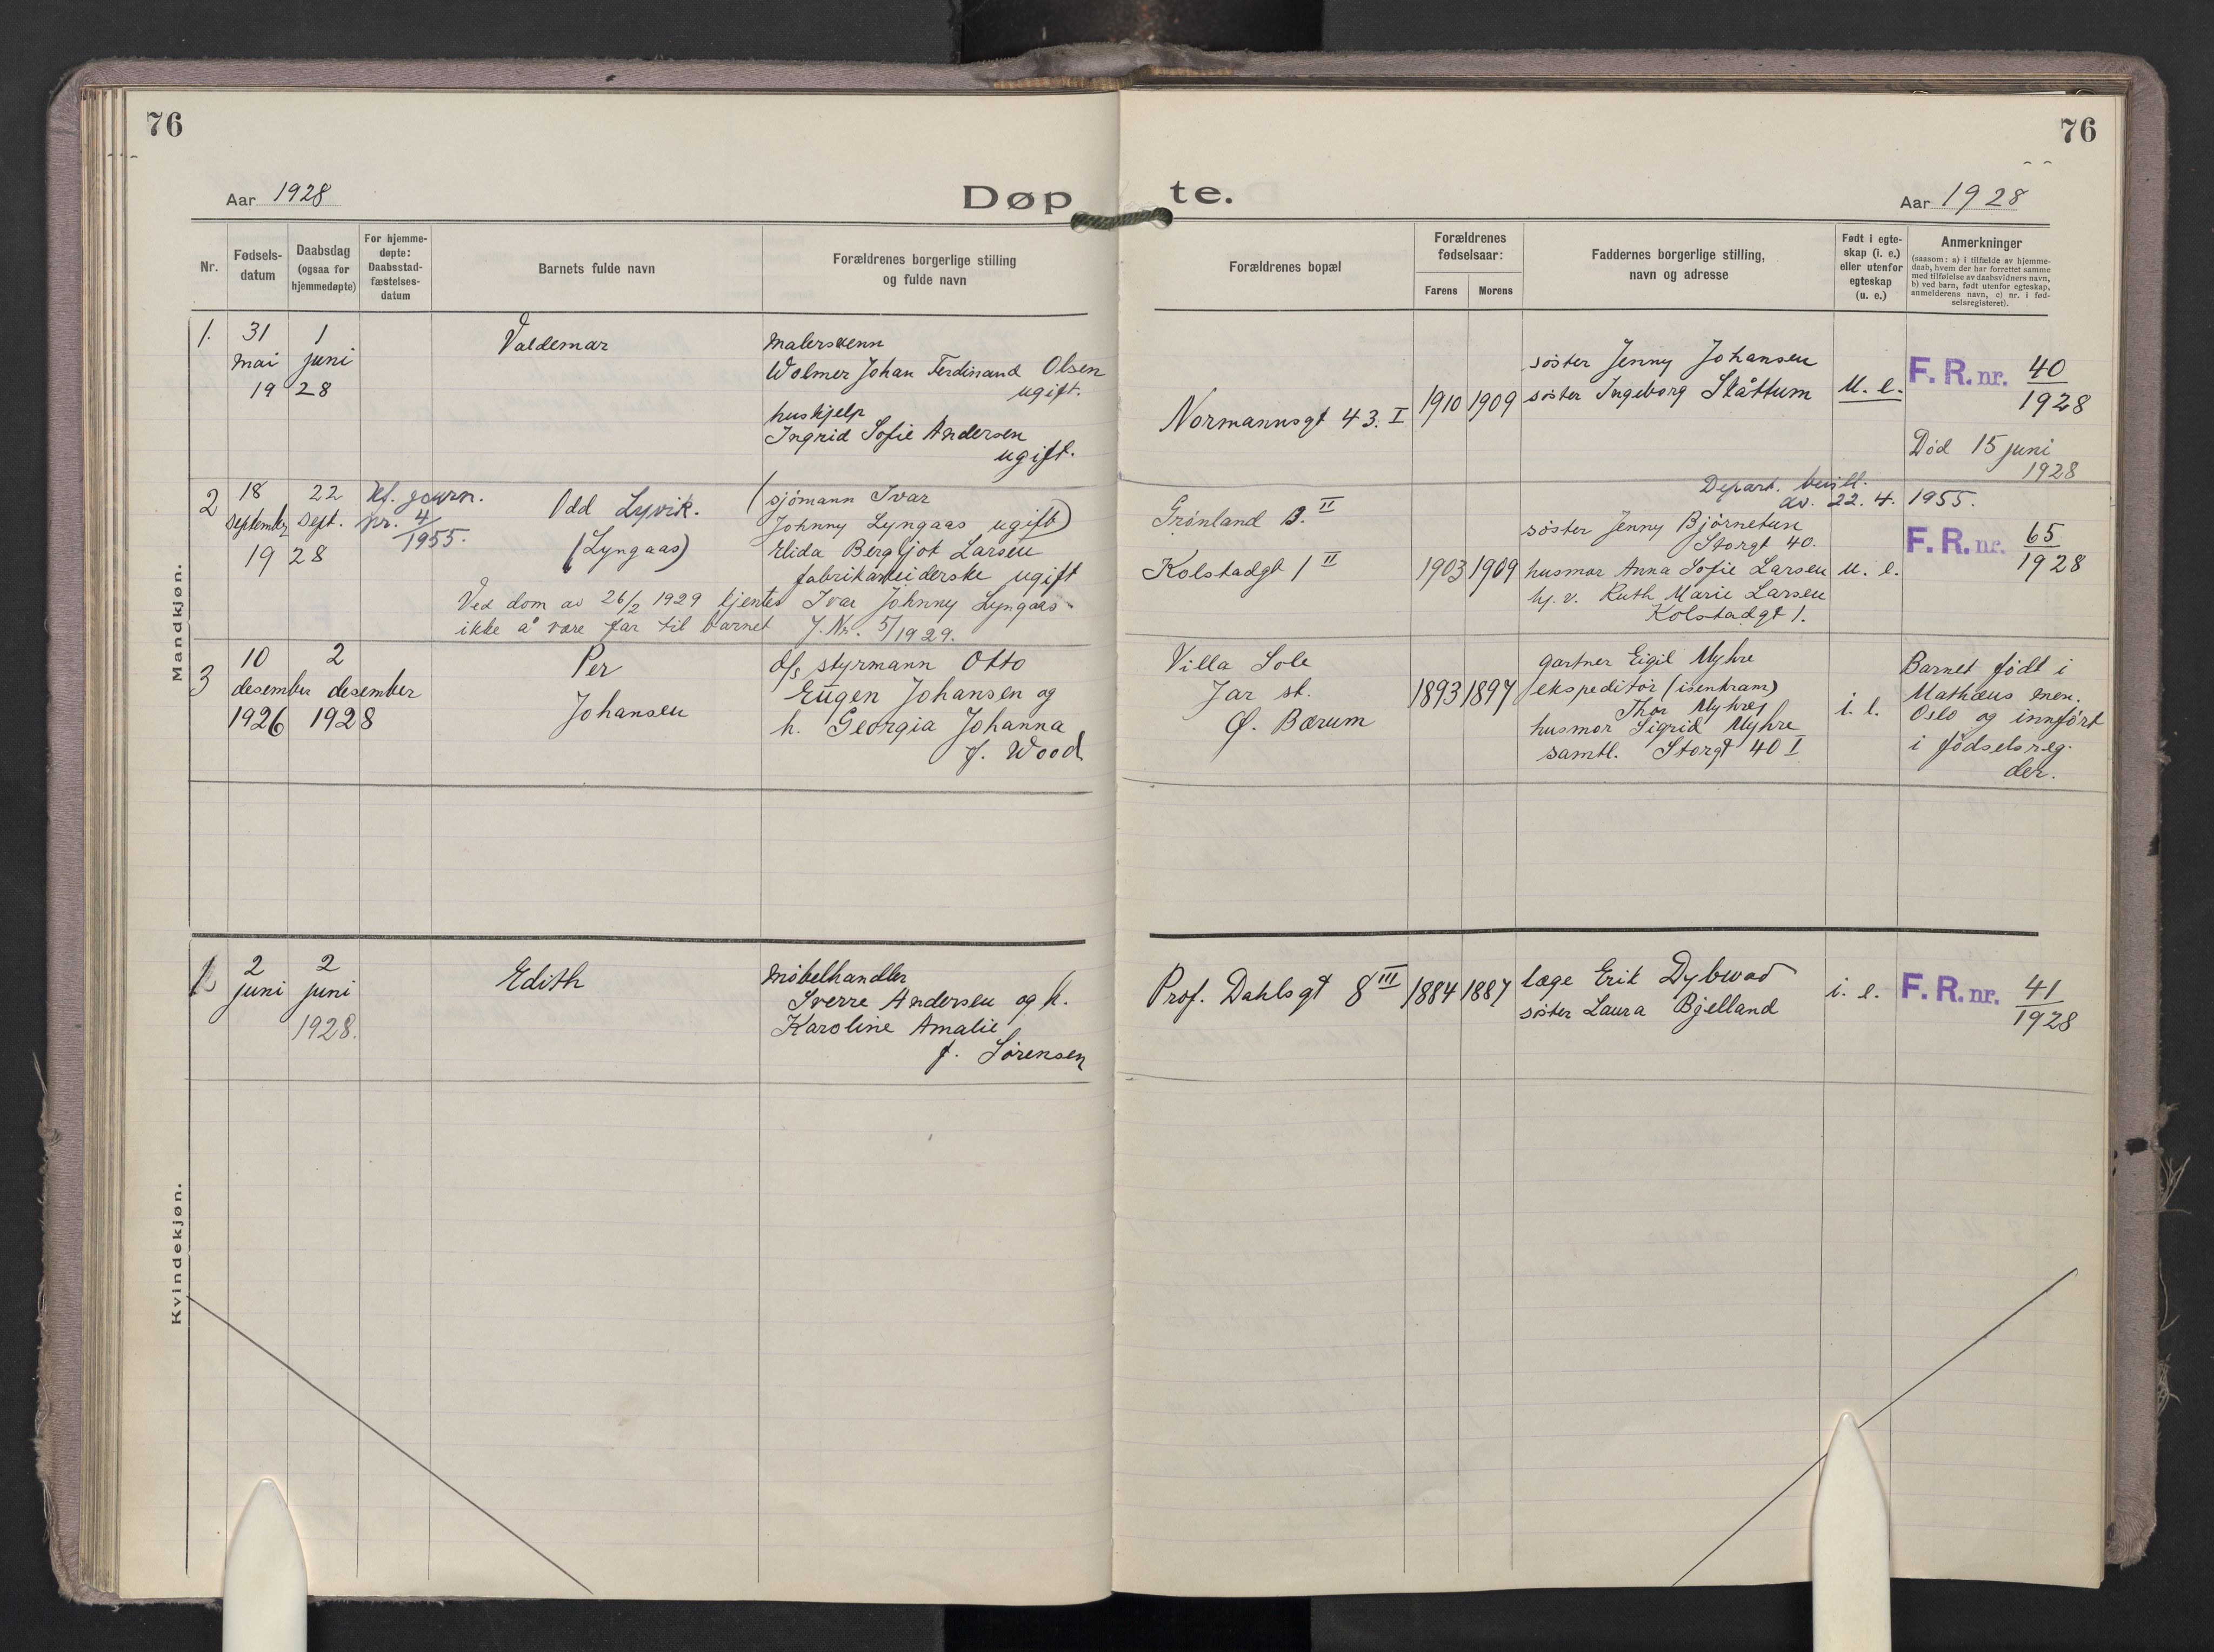 76
76
Aar 1928
Døp te.
Aar 1928
Nr.
Fødsels-
datum
Daabsdag
(ogsaa for
hjemmedøpte)
For hjemme-
døpte:
Daabsstad-
fæstelses-
datum
Barnets fulde navn
Forældrenes borgerlige stilling
og fulde navn
Forældrenes bopæl
Forældrenes
fødselsaar:
Farens
Morens
Faddernes borgerlige stilling,
navn og adresse
Født i egte-
skap (i. e.)
eller utenfor
egteskap
(u. e.)
Anmerkninger
(saasom: a) i tilfælde av hjemme-
daab, hvem der har forrettet samme
med tilføielse av daabsvidners navn,
b) ved barn, født utenfor egteskap,
anmelderens navn, c) nr. i fød-
selsregisteret).
Mandkjøn.
1.
31
mai
1
juni
19 28
Valdemar
malersvenn
Wolmer Johan Ferdinand Olsen
ugift.
hushjelp
Ingrid Sofie Andersen
ugift.
Normannsgt 43. I
1910
1909
søster Jenny Johansen
søster Ingeborg Skåttum
u. e.
F. R. nr. 40
1928
Død 15 juni
1928
2
18
september
22
sept.
19 28
kf. journ.
nr. 4/
1955.
Odd Lyvik.
(Lyngaas)
(sjømann Ivar
Johnny Lyngaas ugift)
Elida Bergljot Larsen
fabrikarbeiderske ugift
Ved dom av 26/2 1929 kjentes Ivar Johnny Lyngaas
ikke å være far til barnet J. Nr. 5/1929.
Grønland 13. II
Kolstadgt 1 II
1903
1909
Depart. bevill.
av. 22. 4. 1955.
søster Jenny Bjørnetun
Storgt 40.
husmor Anna Sofie Larsen
hj. v. Ruth Marie Larsen
Kolstadgt 1.
u. e.
F. R. nr. 65
1928
3
10
desember
1926
2
desember
1928
Per
Johansen
d/s styrmann Otto
Eugen Johansen og
h. Georgia Johanna
f. Wood
Villa Sole
Jar st.
Ø. Bærum
1893
1897
gartner Eigil Myhre
ekspeditør (isenkram)
Thor Myhre
husmor Sigrid Myhre
samtl. Storgt 40 I
i. e.
Barnet født i
Mathæus men.
Oslo og innført
i fødselsreg.
der.
Kvindekjøn.
1.
2
juni
2
juni
1928.
Edith
møbelhandler
Sverre Andersen og h.
Karoline Amalie
f. Sørensen
Prof. Dahlsgt 8 III
1884
1887
læge Erik Dybwad
søster Laura Bjelland
i. e.
F. R. nr. 41
1928